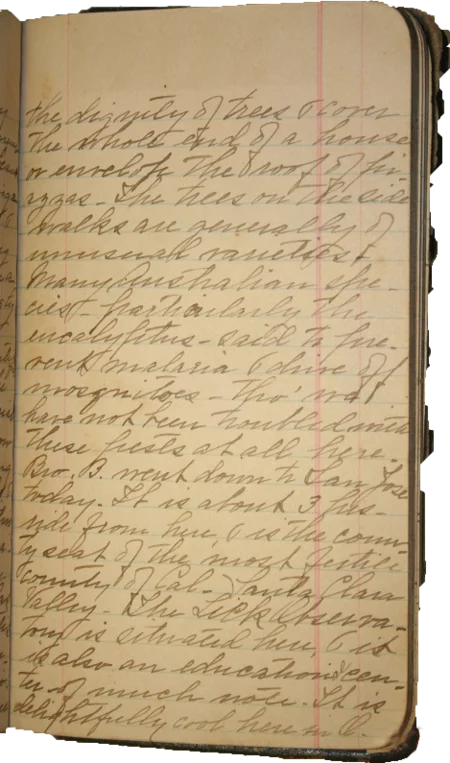 the dignity of trees & cover
the whole end of a house
or envelope the roof of pi-
azzas - The trees on the side
walks are generally of
unusual varieties &
Many Australian spe-
cies - particularly the
eucalyptus - said to pre-
vent malaria & drive off
mosquitoes - tho' we
have not been troubled with
these pests at all here.
Bro. B. went down to San Jose
today. It is about 3 hrs-
ride from here, & is the coun-
ty seat of the most fertile
county of Cal- Santa Clara
Valley - The Lick Observa-
tory is situated here, & it
is also an educational cen-
ter of much note. It is
delightfully cool here in O.